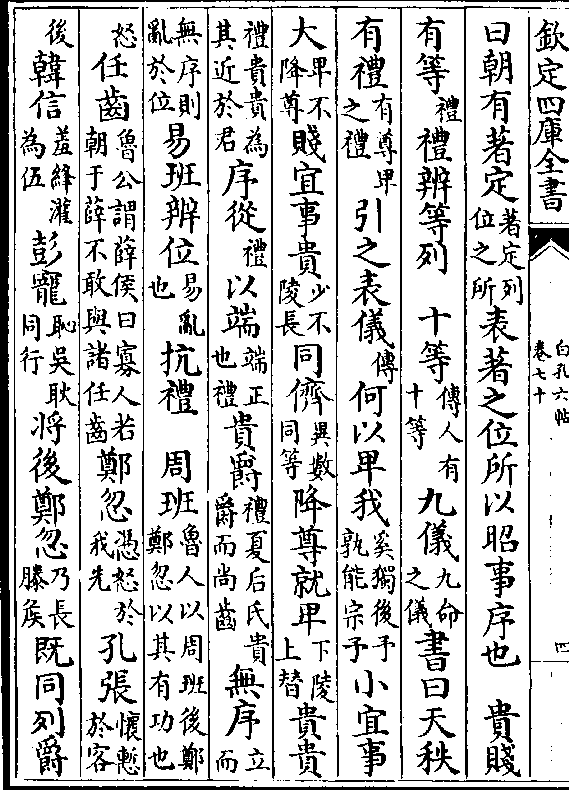 欽定四庫全書
白孔六帖
卷七十
四
曰朝有著定著定列位之所表著之位所以昭事序也 貴賤
有等禮禮辨等列 十等傳人有十等九儀九命之儀書曰天秩
有禮有尊卑之禮引之表儀傳何以卑我奚獨後予孰能宗予小宜事
大卑不降尊賤宜事貴少不陵長同儕異數同等降尊就卑下陵上替貴貴
禮貴貴為其近於君序從禮以端端正也禮貴爵禮夏后氏貴爵而尚齒無序立而
無序則亂於位易班辨位易亂也抗禮 周班魯人以周班後鄭鄭忽以其有功也
怒任齒魯公謂薛侯曰寡人若朝于薛不敢與諸任齒鄭忽憑怒於我先孔張懷慙於客
後韓信羞絳灌為伍彭寵恥吳耿同行將後鄭忽乃長滕侯既同列爵